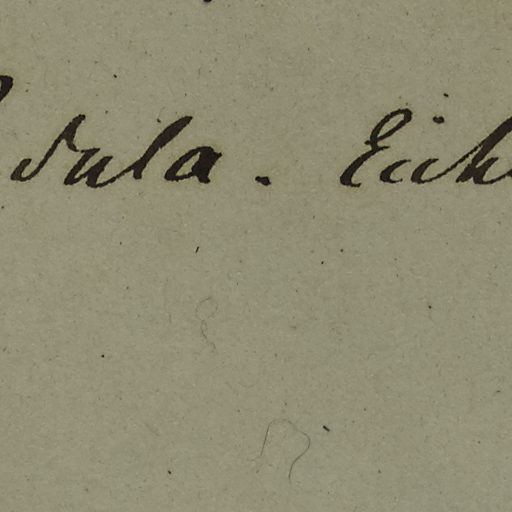 dula. Eich